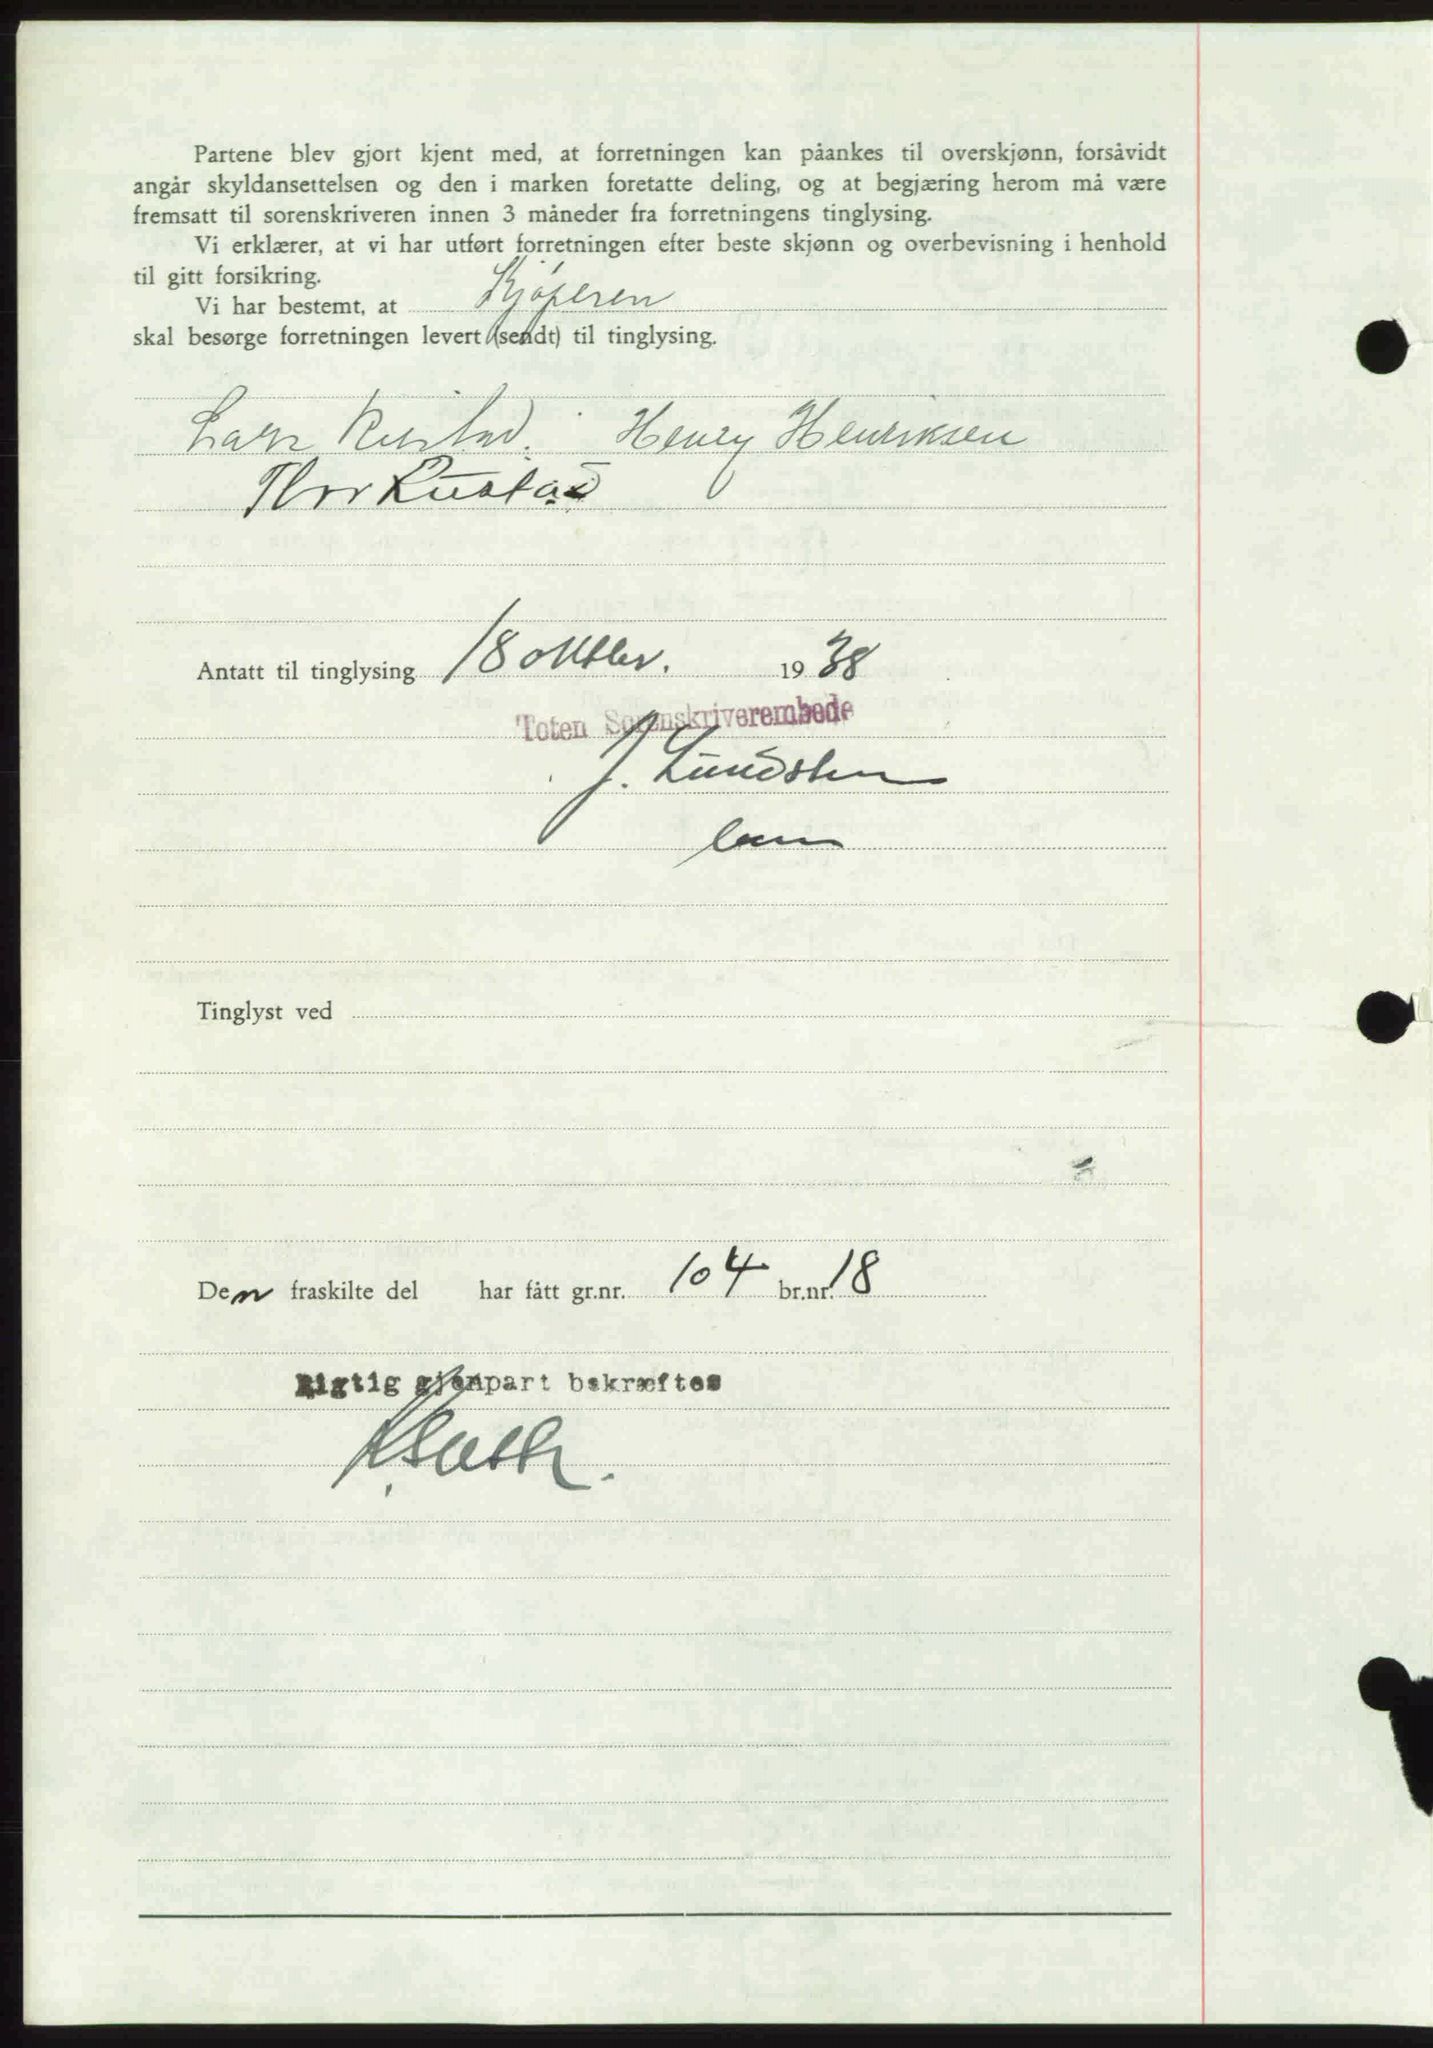 Partene blev gjort kjent med, at forretningen kan påankes til overskjønn, forsåvidt
angår skyldansettelsen og den i marken foretatte deling, og at begjæring herom må være
fremsatt til sorenskriveren innen 3 måneder fra forretningens tinglysing.
Vi erklærer, at vi har utført forretningen efter beste skjønn og overbevisning i henhold
til gitt forsikring.
Vi har bestemt, at Kjøperen
skal besørge forretningen levert (sendt) til tinglysing.
Lars Rustad. Henry Henriksen
Thor Rustad
Antatt til tinglysing 18 oktbr. 1938
Toten Sorenskriverembede
J. Lundsten
Den fraskilte del har fått gr.nr. 104 br.nr. 18
Tinglyst ved
Rigtig gjenpart bekræftes